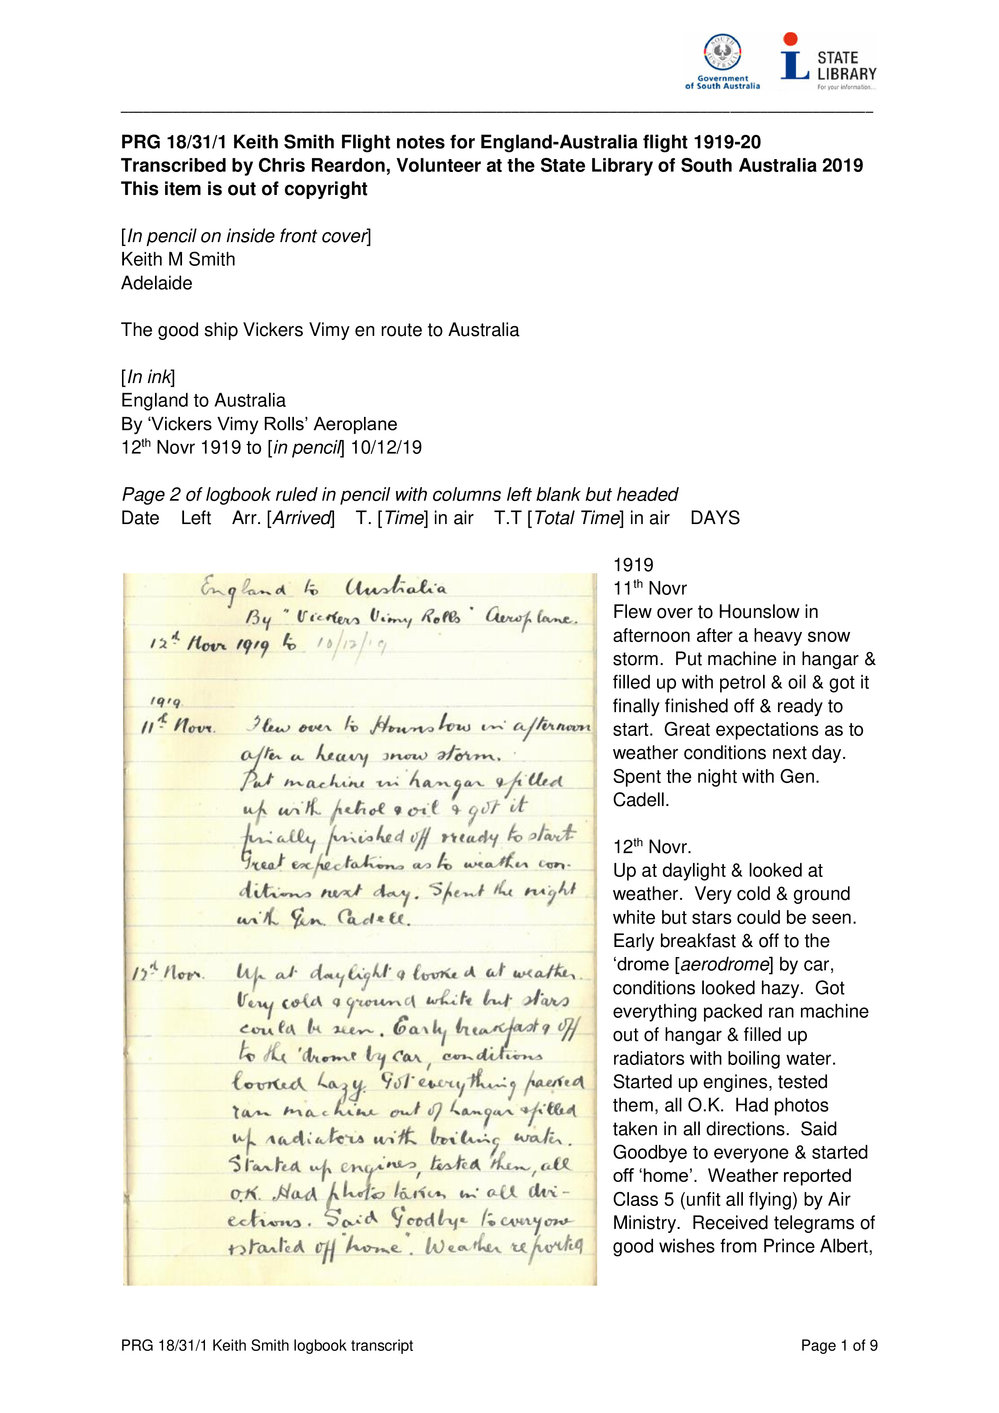 SOUTH
AUSTRALIA
Government
of South Australia
STATE
LIBRARY
For your information...
PRG 18/31/1 Keith Smith Flight notes for England-Australia flight 1919-20
Transcribed by Chris Reardon, Volunteer at the State Library of South Australia 2019
This item is out of copyright
[In pencil on inside front cover]
Keith M Smith
Adelaide
The good ship Vickers Vimy en route to Australia
[In ink]
England to Australia
By ‘Vickers Vimy Rolls’ Aeroplane
12th Novr 1919 to [in pencil] 10/12/19
Page 2 of logbook ruled in pencil with columns left blank but headed
Date Left Arr. [Arrived] T. [Time] in air T.T [Total Time] in air DAYS
England to Australia
By "Vickers Vimy Rolls" Aeroplane.
12th Novr 1919 to 10/12/19
1919
11th Novr. Flew over to Hounslow in afternoon
after a heavy snow storm.
Put machine in hangar & filled
up with petrol & oil & got it
finially finished off & ready to start
Great expectations as to weather con-
ditions next day. Spent the night
with Gen. Cadell.
12th Novr. Up at daylight & looked at weather.
Very cold & ground white but stars
could be seen. Early breakfast & off
to the 'drome by car, conditions
looked hazy. Got everything packed
ran machine out of hangar & filled
up radiators with boiling water.
Started up engines, tested them, all
O.K. Had photos taken in all dir-
ections. Said Goodbye to everyone
& started off "home". Weather reported
1919
11th Novr
Flew over to Hounslow in
afternoon after a heavy snow
storm. Put machine in hangar &
filled up with petrol & oil & got it
finally finished off & ready to
start. Great expectations as to
weather conditions next day.
Spent the night with Gen.
Cadell.
12th Novr.
Up at daylight & looked at
weather. Very cold & ground
white but stars could be seen.
Early breakfast & off to the
‘drome [aerodrome] by car,
conditions looked hazy. Got
everything packed ran machine
out of hangar & filled up
radiators with boiling water.
Started up engines, tested
them, all O.K. Had photos
taken in all directions. Said
Goodbye to everyone & started
off ‘home’. Weather reported
Class 5 (unfit all flying) by Air
Ministry. Received telegrams of
good wishes from Prince Albert,
PRG 18/31/1 Keith Smith logbook transcript
Page 1 of 9